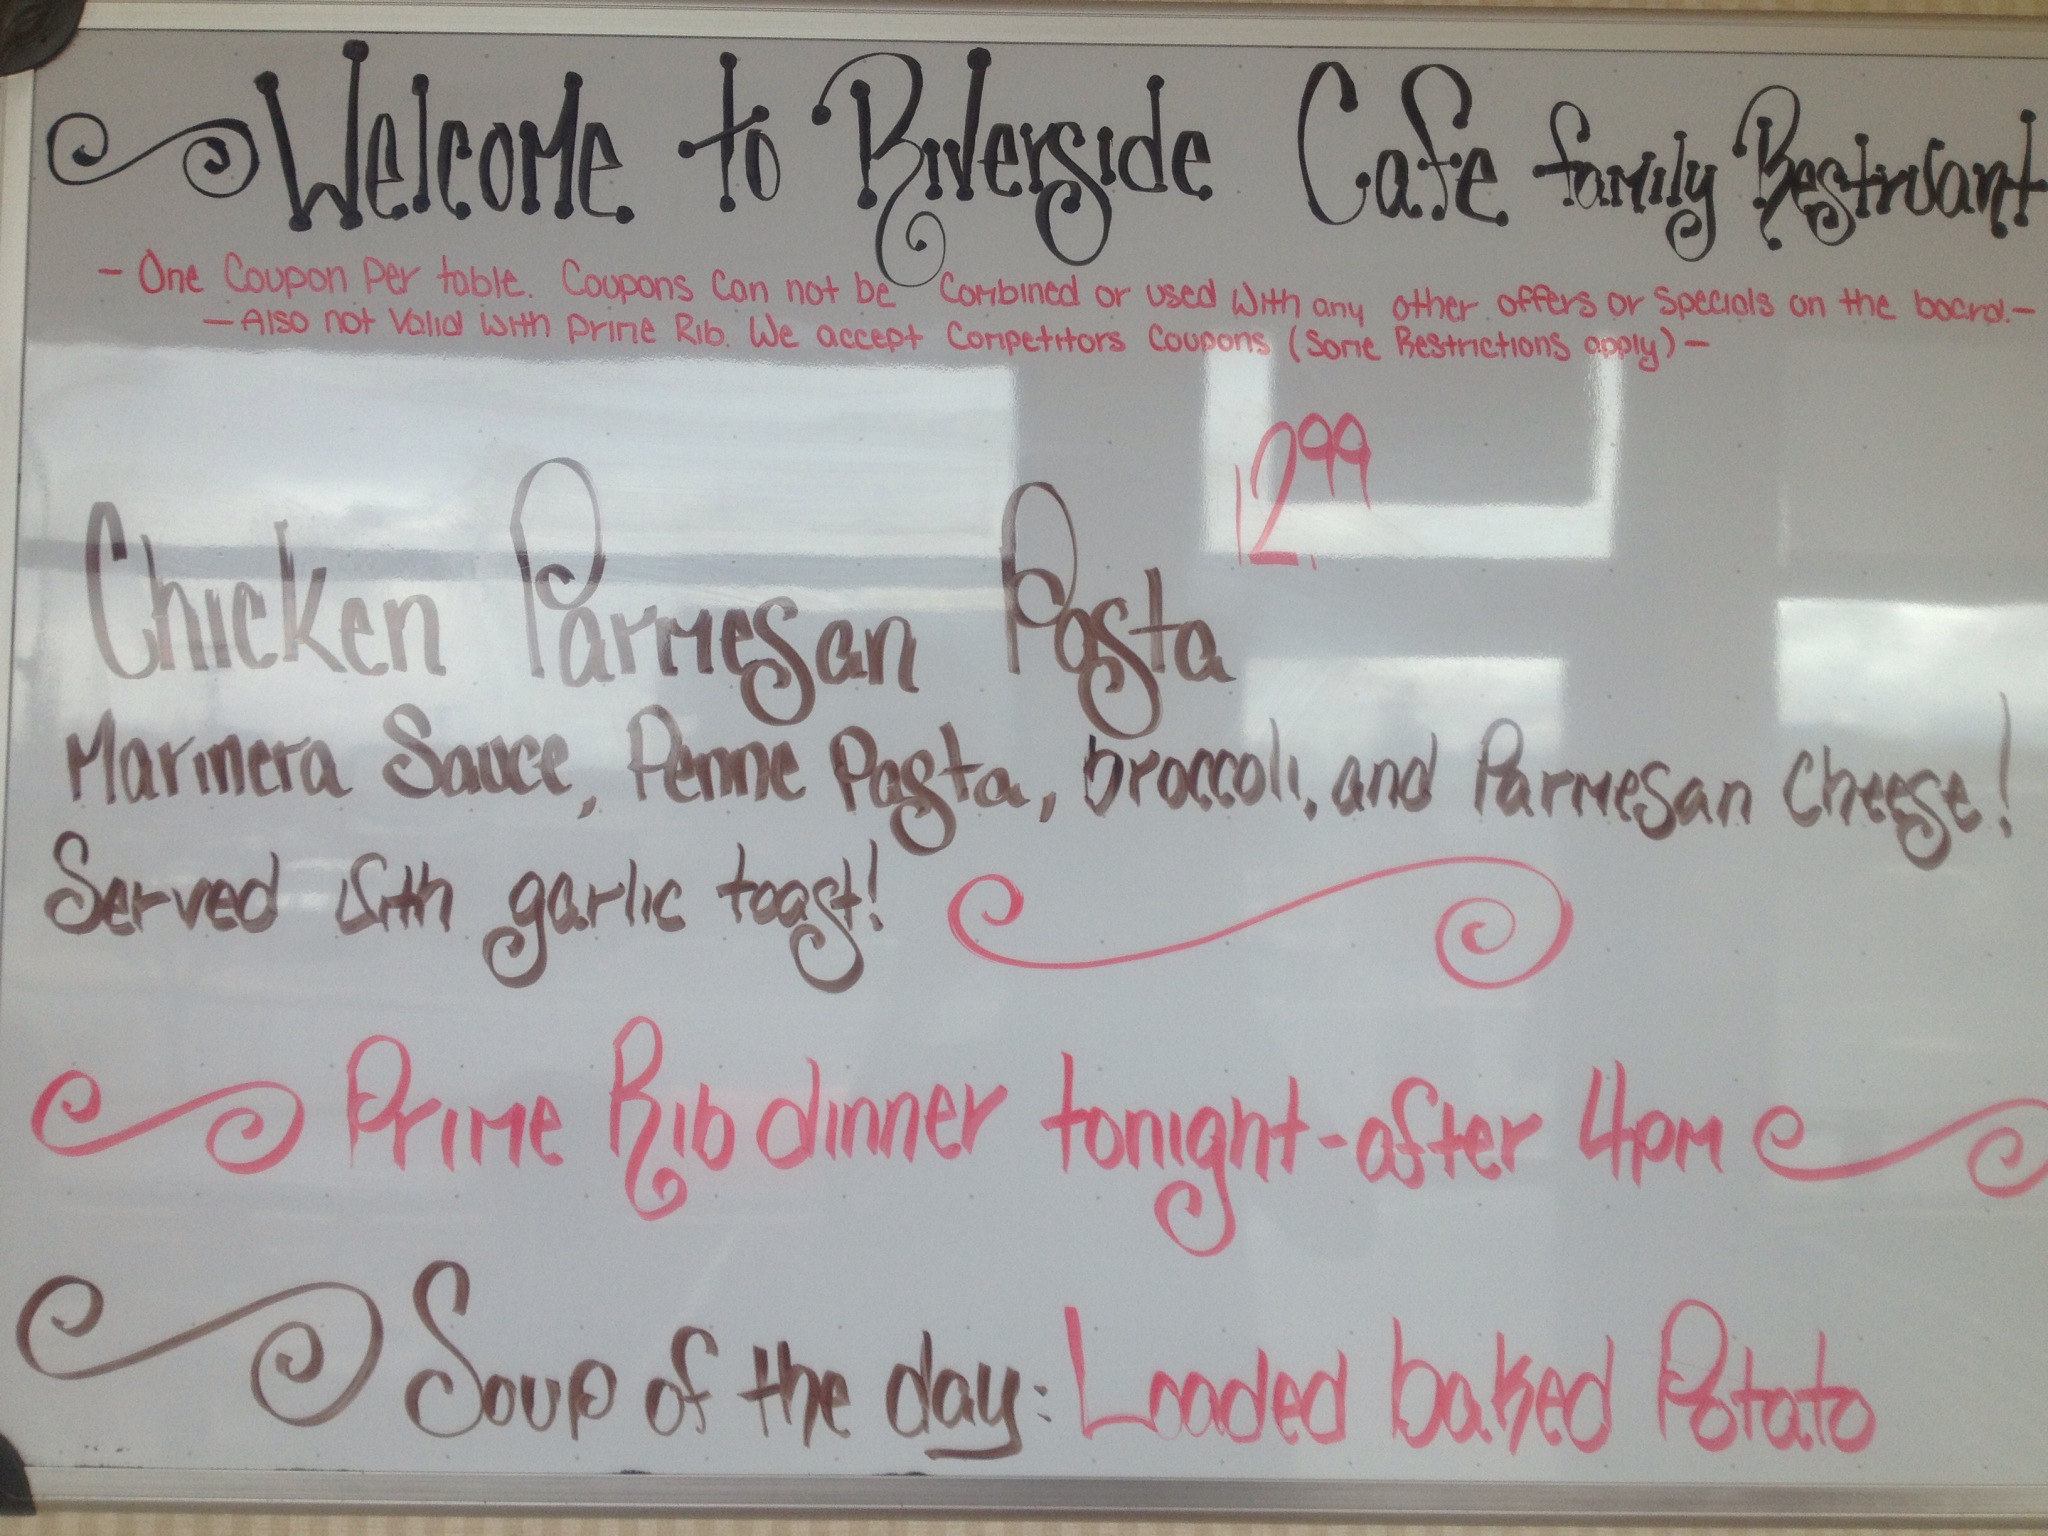 Welcome to Riverside Cafe family Restruant
- One Coupon Per table. Coupons Can not be Combined or used with any other offers or specials on the board.-
- Also not Valid with Prime Rib. We accept Competitors Coupons (Some Restrictions apply) -
12.99
Chicken Parmesan Pasta
Marinera Sauce, Penne Pasta, broccoli, and Parmesan Cheese!
Served with garlic toast!
Prime Rib dinner tonight-after 4pm
Soup of the day: Loaded baked Potato